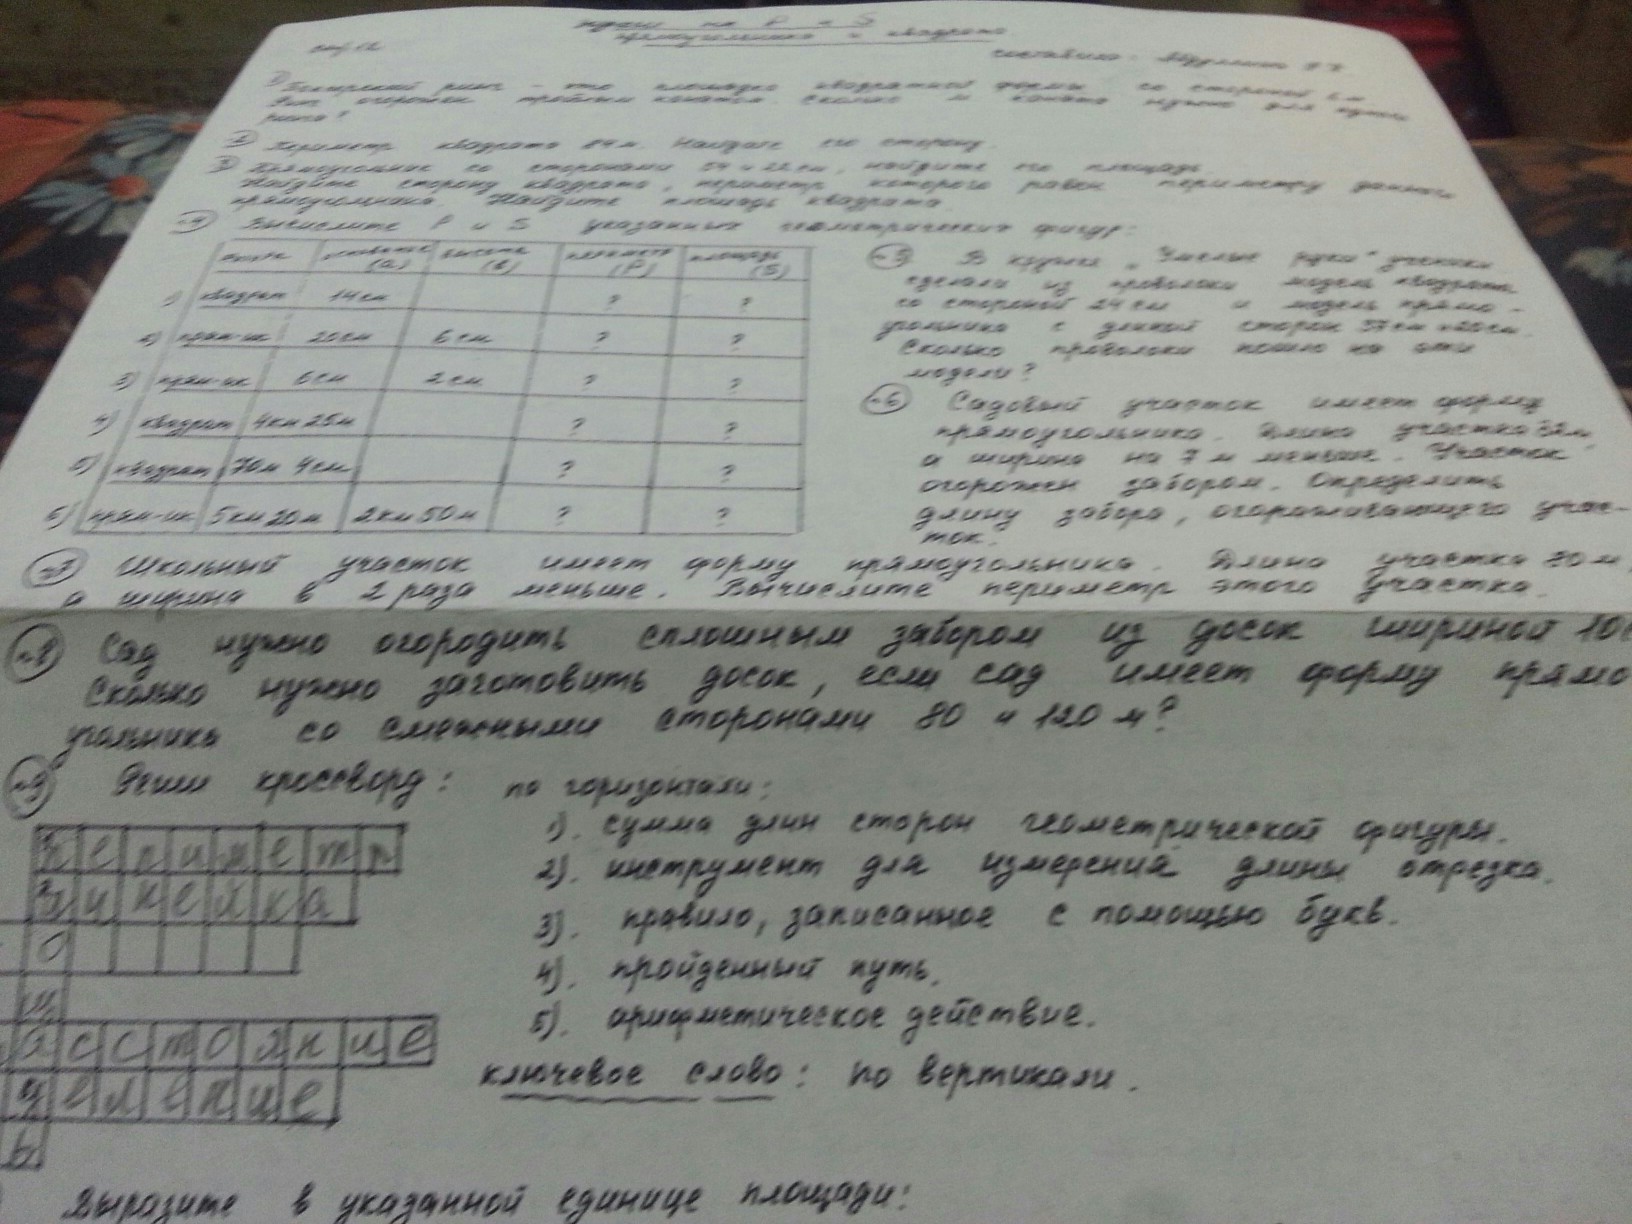 задачи на P и S
прямоугольника и квадрата
составила:
1) Боксерский ринг - это площадка квадратной формы со стороной 6 м
Ринг огорожен тройным канатом. Сколько м каната нужно для
ринга?
2) Периметр квадрата 84 м. Найдите его сторону.
3) Прямоугольник со сторонами 54 и 22 см, найдите его площадь.
Найдите сторону квадрата, периметр которого равен периметру данного
прямоугольника. Найдите площадь квадрата.
№4 Вычислите P и S указанных геометрических фигур:
основание (а) высота (в) периметр (P) площадь (S)
1) квадрат 14 см ? ?
2) прям-ик 20 см 6 см ? ?
3) прям-ик 6 см 2 см ? ?
4) квадрат 4 км 25 м ? ?
5) квадрат 70 м 4 см ? ?
6) прям-ик 5 км 20 м 2 км 50 м ? ?
№5 В кружке „Умелые руки" ученики
сделали из проволоки модель квадрата
со стороной 24 см и модель прямо-
угольника с длиной сторон 37 см и 20 см.
Сколько проволоки пошло на эти
модели?
№6 Садовый участок имеет форму
прямоугольника. Длина участка 32 м
а ширина на 7 м меньше. Участок
огорожен забором. Определить
длину забора, огораживающего учас-
ток.
№7 Школьный участок имеет форму прямоугольника. Длина участка 70 м,
а ширина в 2 раза меньше. Вычислите периметр этого участка.
№8 Сад нужно огородить сплошным забором из досок шириной 10
Сколько нужно заготовить досок, если сад имеет форму прямо
угольника со смежными сторонами 80 и 120 м?
№9 Реши кроссворд: по горизонтали:
периметр
1). сумма длин сторон геометрической фигуры.
линейка
2). инструмент для измерения длины отрезка.
о
3). правило, записанное с помощью букв.
щ
4). пройденный путь.
расстояние
5). арифметическое действие.
деление
ключевое слово: по вертикали.
ь
Выразите в указанной единице площади: